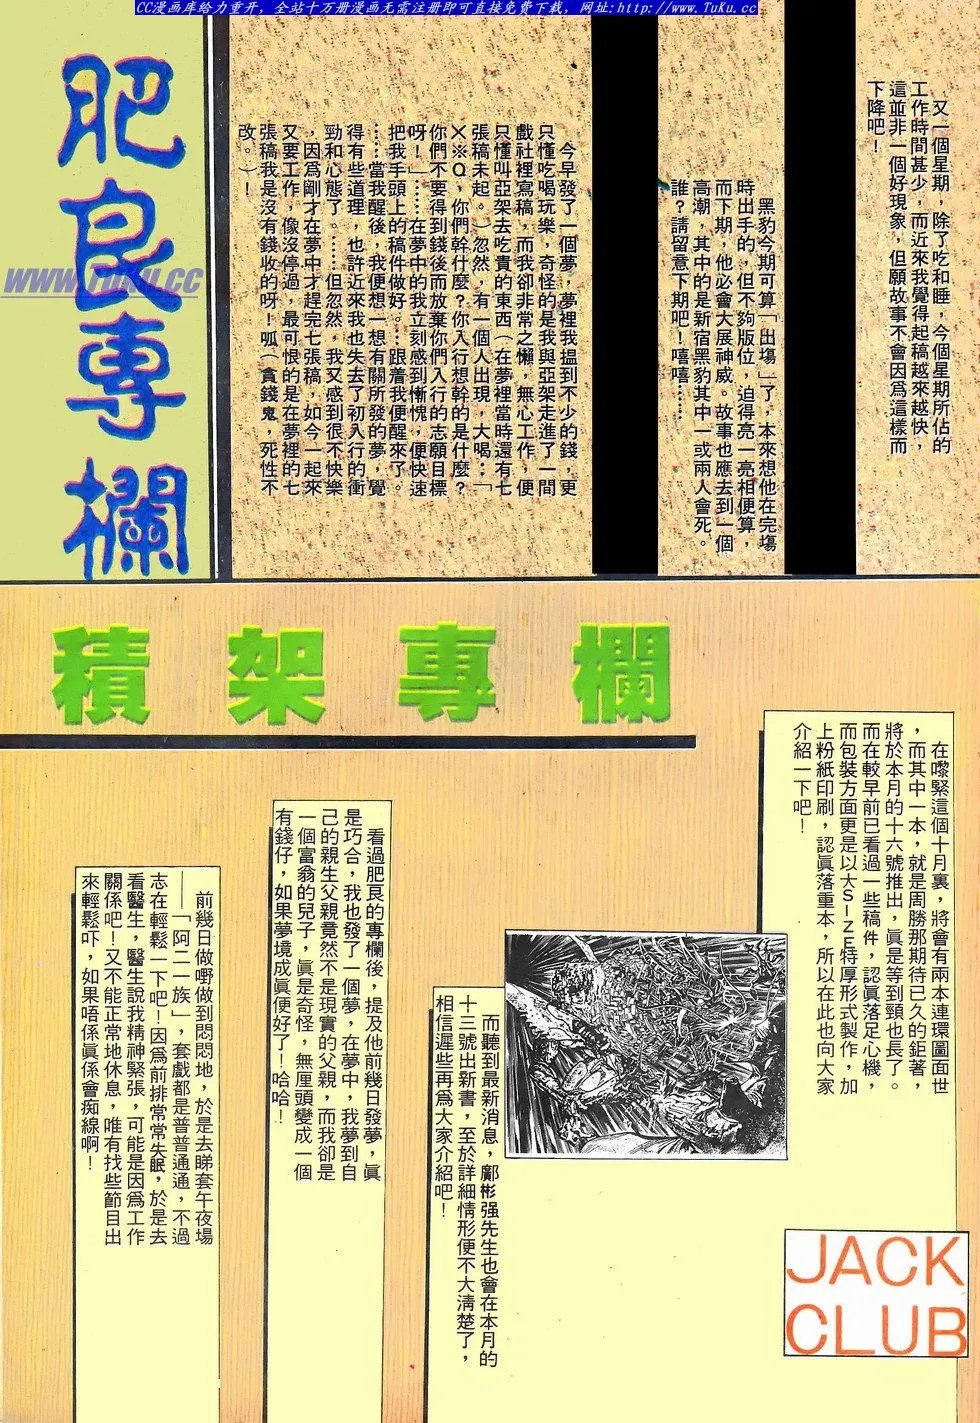 CC漫画库给力重开，全站十万册漫画无需注册即可直接免费下载，网址:http://www.TuKu.cc
肥良專欄
www.Tuku.cc
又一個星期，除了吃和睡，今個星期所佔的
工作時間甚少，而近來我覺得起稿越來越快，
這並非一個好現象，但願故事不會因爲這樣而
下降吧！
黑豹今期可算「出塲」了，本來想他在完塲
時出手的，但不夠版位，迫得亮一亮相便算，
而下期，他必會大展神威。故事也應去到一個
高潮，其中的是新宿黑豹其中一或兩人會死。
誰？請留意下期吧！嘻嘻……
今早發了一個夢，夢裡我搵到不少的錢，更
只懂吃喝玩樂，奇怪的是我與亞架走進了一間
戲社裡寫稿，而我卻非常之懶，無心工作，便
只懂叫亞架去吃貴的東西（在夢裡當時還有七
張稿未起。）忽然，有一個人出現，大喝：「
✕※Q，你們幹什麼？你入行想幹的是什麼？
你們不要得到錢後而放棄你們入行的志願目標
呀！」……在夢中的我立刻感到慚愧，便快速
把我手頭上的稿件做好。…跟着我便醒來了。
……當我醒後，我便想一想有關所發的夢，覺
得有些道理，也許近來我也失去了初入行的衝
勁和心態了。……但忽然，我又感到很不快樂
，因爲剛才在夢中才趕完七張稿，如今一起來
又要工作，像沒停過，最可恨的是在夢裡的七
張稿我是沒有錢收的呀！呱（貪錢鬼，死性不
改。）！
積架專欄
在嚟緊這個十月裏，將會有兩本連環圖面世
，而其中一本，就是周勝那期待已久的鉅著，
將於本月的十六號推出，眞是等到頸也長了。
而在較早前已看過一些稿件，認眞落足心機，
而包裝方面更是以大SIZE特厚形式製作，加
上粉紙印刷，認眞落重本，所以在此也向大家
介紹一下吧！
而聽到最新消息，鄺彬强先生也會在本月的
十三號出新書，至於詳細情形便不大清楚了，
相信遲些再爲大家介紹吧！
看過肥良的專欄後，提及他前幾日發夢，眞
是巧合，我也發了一個夢，在夢中，我夢到自
己的親生父親竟然不是現實的父親，而我卻是
一個富翁的兒子，眞是奇怪，無厘頭變成一個
有錢仔，如果夢境成眞便好了！哈哈！
前幾日做嘢做到悶悶地，於是去睇套午夜場
——「阿二一族」，套戲都是普普通通，不過
志在輕鬆一下吧！因爲前排常常失眠，於是去
看醫生，醫生說我精神緊張，可能是因爲工作
關係吧！又不能正常地休息，唯有找些節目出
來輕鬆吓，如果唔係眞係會痴線啊！
JACK
CLUB